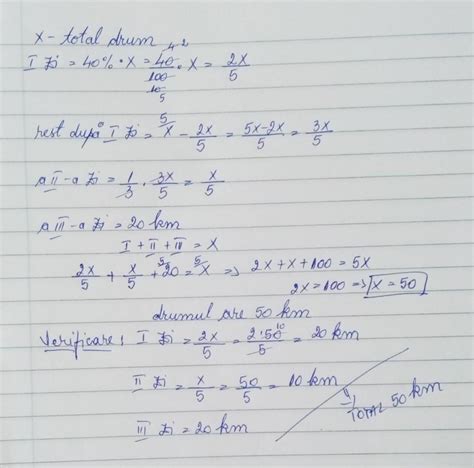 x - total drum
I zi = 40% · x = 40/100 · x = 2x/5
rest după I zi = x - 2x/5 = 5x-2x/5 = 3x/5
a II-a zi = 1/3 · 3x/5 = x/5
a III-a zi = 20 km
I + II + III = x
2x/5 + x/5 + 20 = x => 2x + x + 100 = 5x
2x = 100 => x = 50
drumul are 50 km
Verificare: I zi = 2x/5 = 2·50/5 = 20 km
II zi = x/5 = 50/5 = 10 km
III zi = 20 km
=> TOTAL 50 km